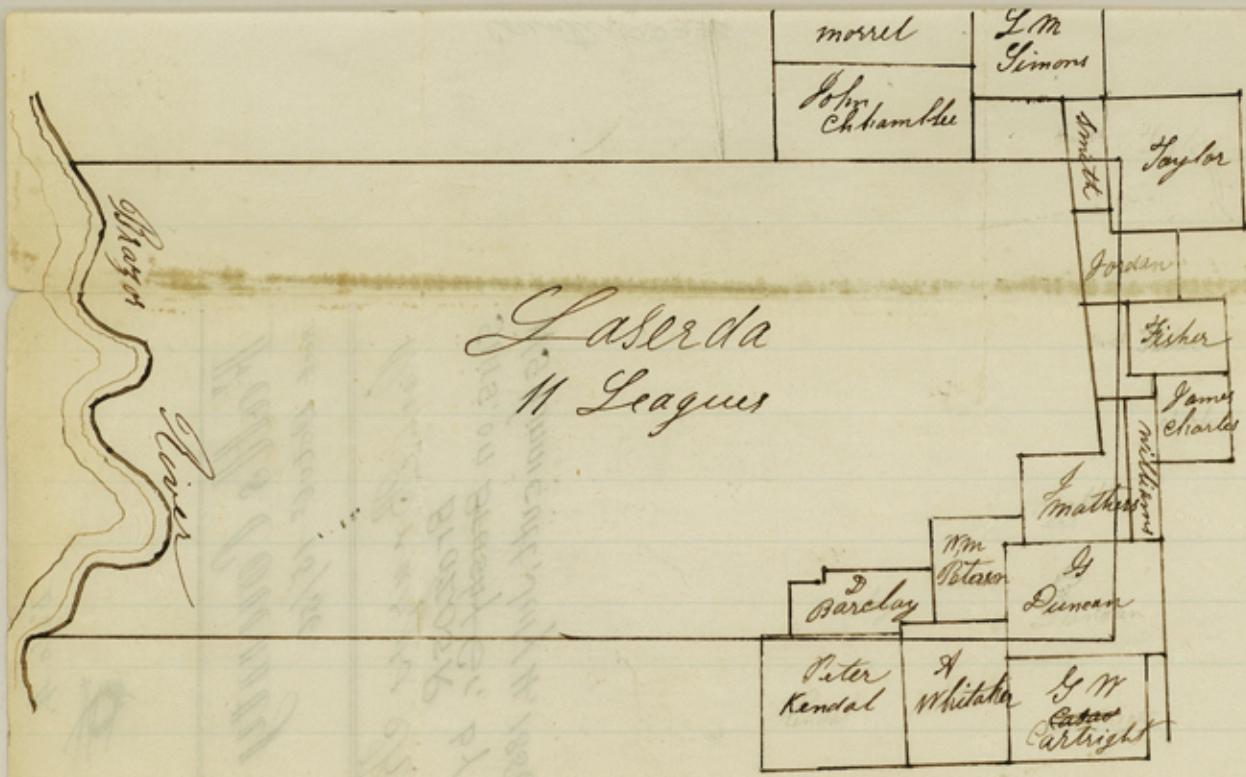 morrel
L M
Simons
John
Chhamblee
Smith
Taylor
Brazos
River
Jordan
Laserda
11 Leagues
Fisher
James
Charles
Williams
J
mathers
Wm
G
Duncan
D
Barclay
Peter
Kendal
A
Whitaker
G W
Cartright